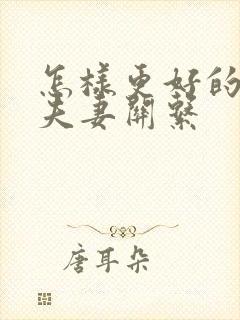 怎樣更好的
夫妻關繫
唐耳朵